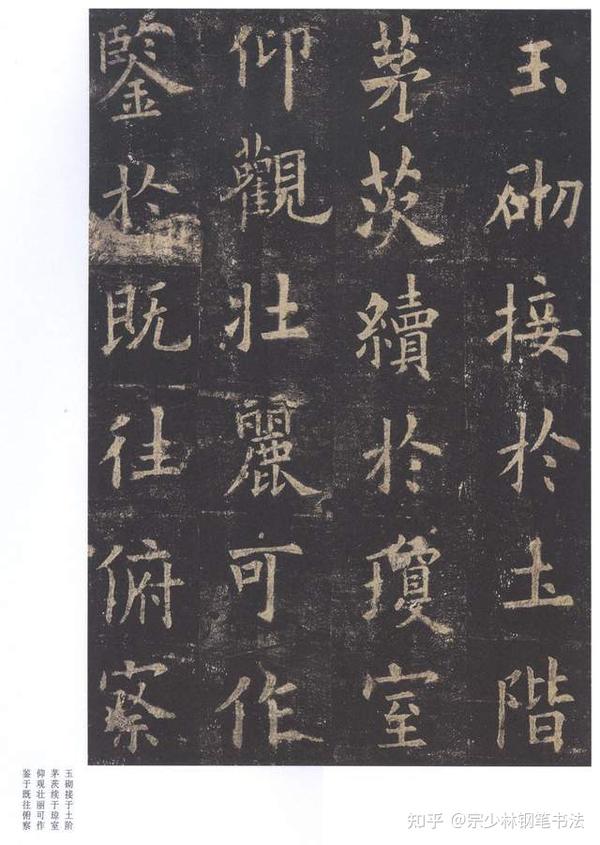 玉砌接於土階
茅茨續於瓊室
仰觀壯麗可作
鑒於既往俯察
玉砌接于土阶
茅茨续于琼室
仰观壮丽可作
鉴于既往俯察
知乎 @宗少林钢笔书法